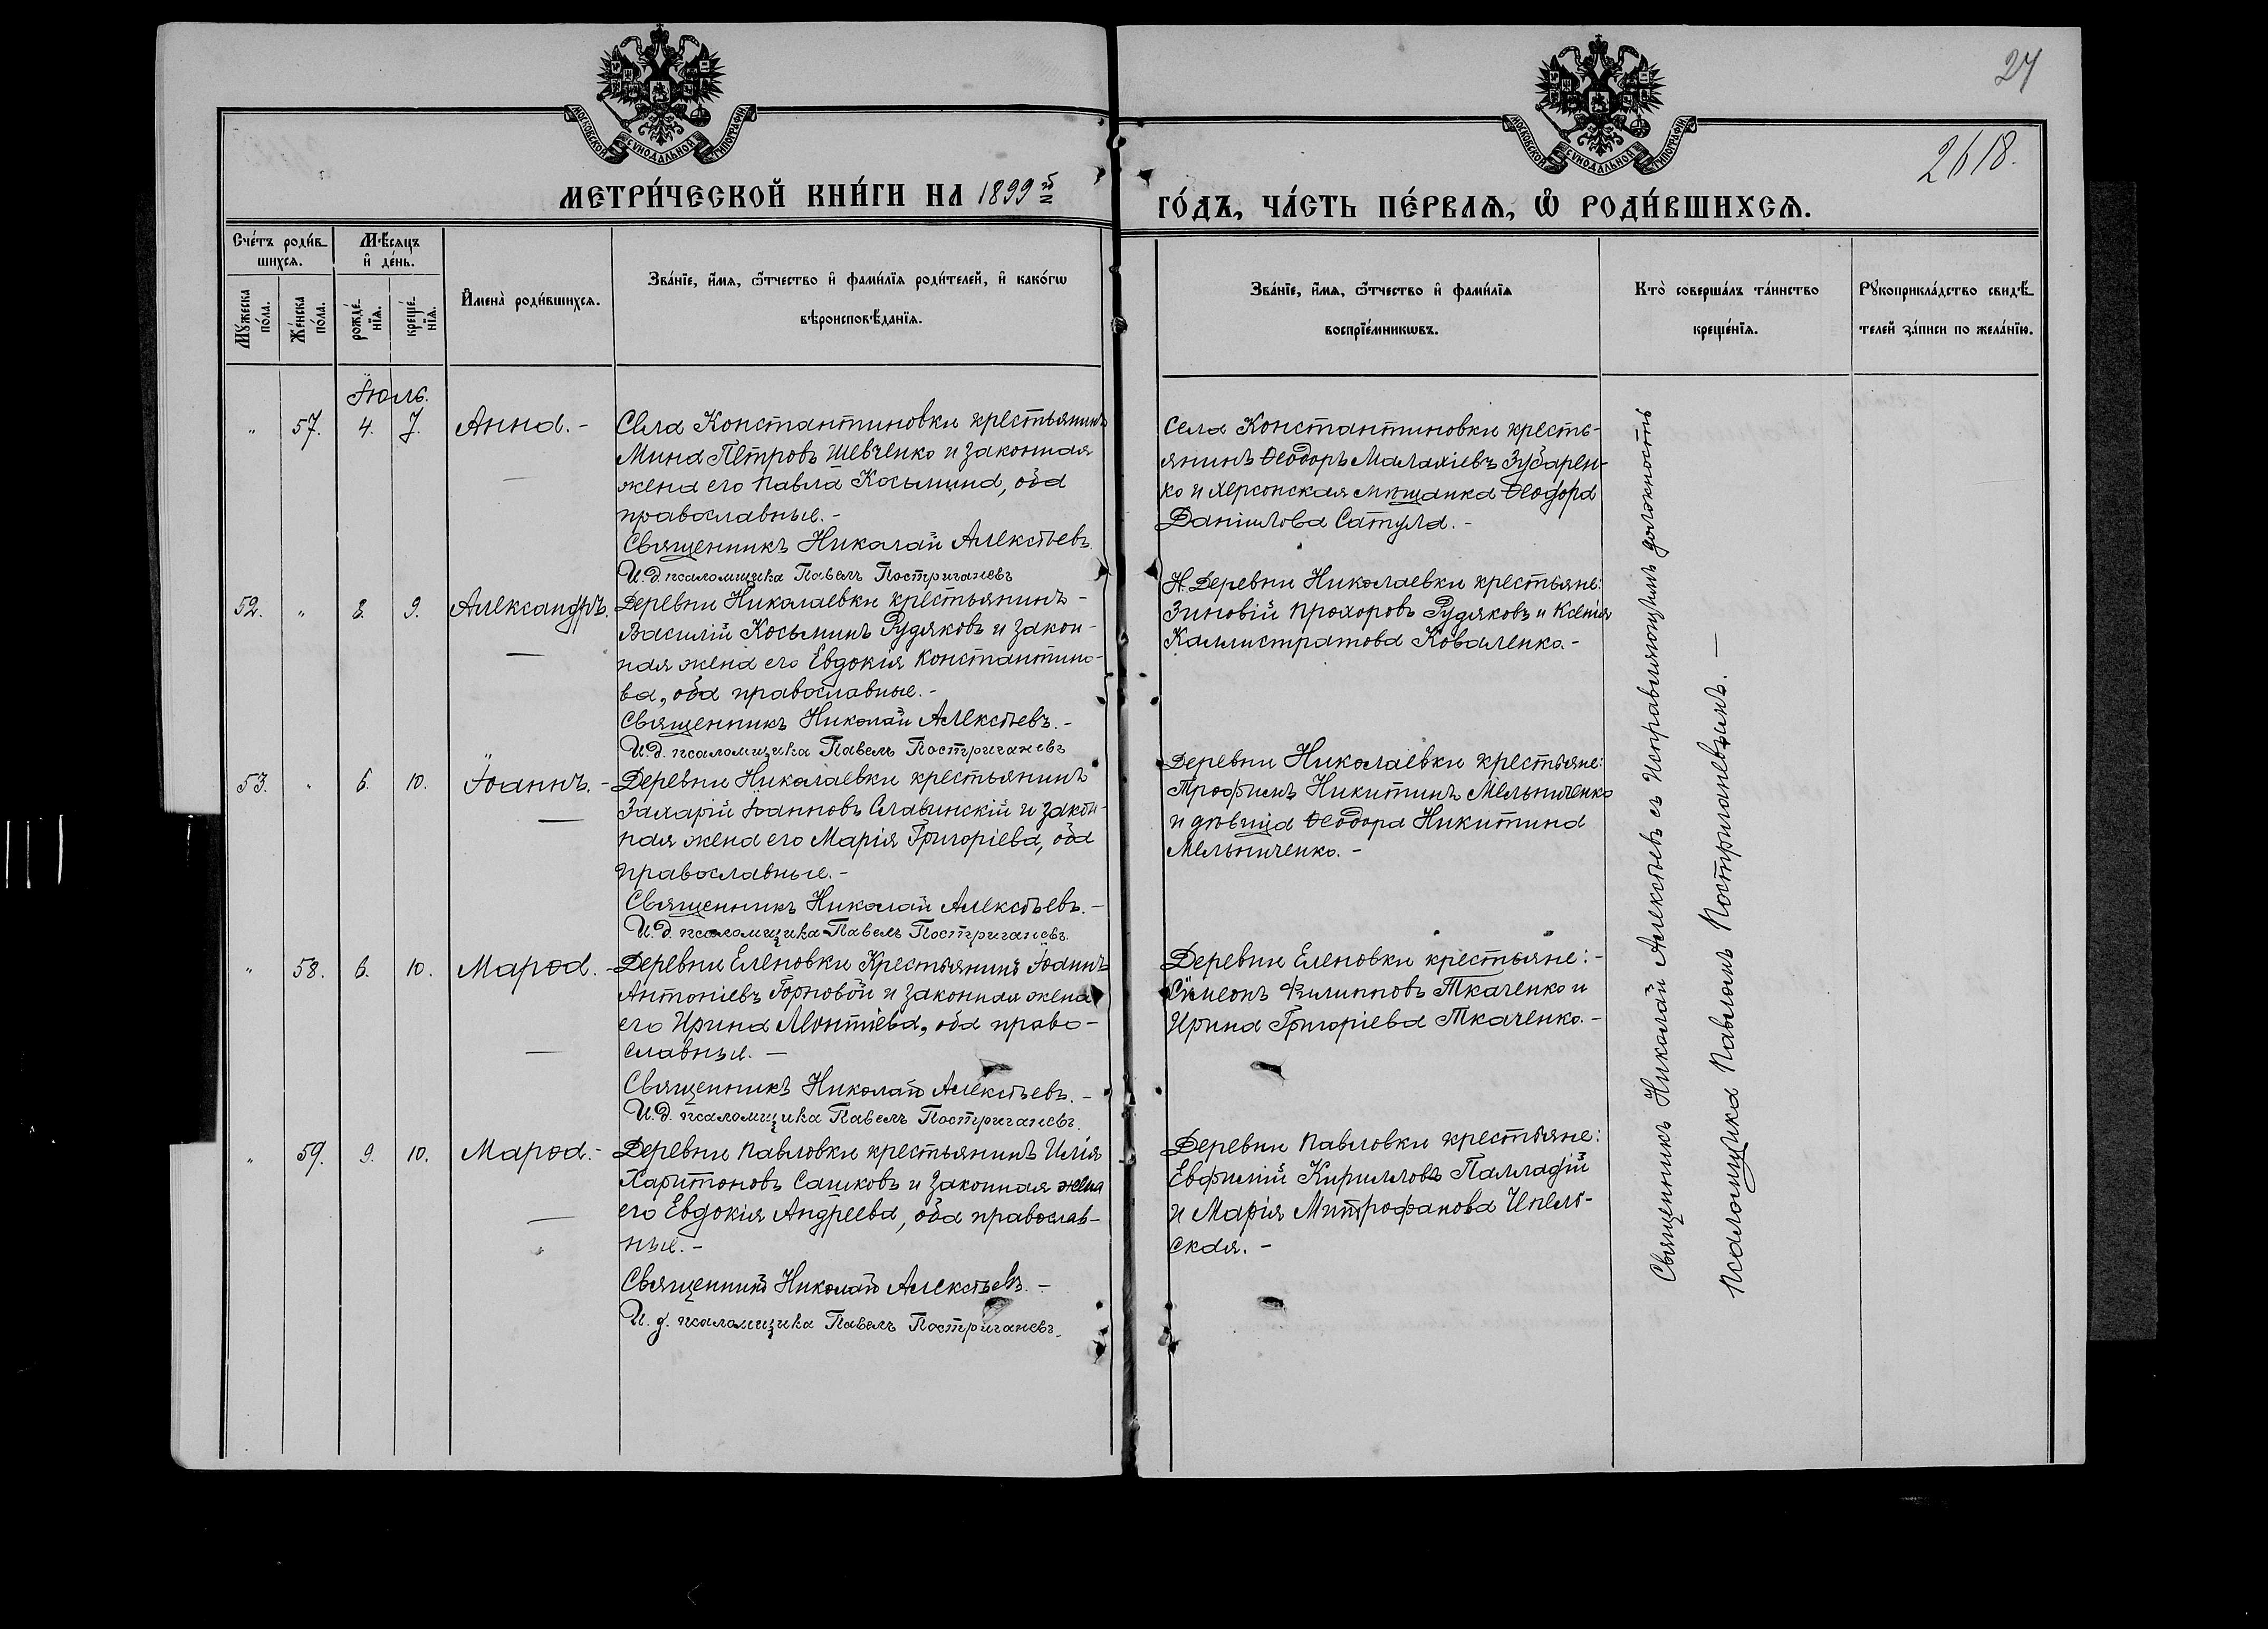 27
2618.
МОСКОВСКОЙ СѴНОДАЛЬНОЙ ТИПОГРАФІИ
МОСКОВСКОЙ СѴНОДАЛЬНОЙ ТИПОГРАФІИ
МЕТРИ́ЧЕСКОЙ КНИ́ГИ НА 1899 й
ГО́ДЪ, ЧА́СТЬ ПЕ́РВАѦ, Ѡ҆ РОДИ́ВШИХСѦ.
Сче́тъ роди́в-
шихсѧ.
Мѣ́сяцъ
и҆ де́нь.
Мꙋ́жеска по́ла.
Же́нска по́ла.
рожде́нїѧ.
креще́нїѧ.
И҆мена̀ роди́вшихсѧ.
Зва́нїе, и҆́мѧ, ѻ҆́тчество и҆ фами́лїѧ роди́телей, и҆ како́гѡ
вѣроисповѣ́данїѧ.
Зва́нїе, и҆́мѧ, ѻ҆́тчество и҆ фами́лїѧ
воспрїе́мникѡвъ.
Кто̀ соверша́лъ та́инство
креще́нїѧ.
Рꙋкоприкла́дство свидѣ́-
телей за́писи по жела́нїю.
Іюль.
" 57. 4. 7. Анна.- Села Константиновки крестьянинъ
Мина Петровъ Шевченко и законная
жена его Павла Косьмина, оба
православные.-
Священникъ Николай Алексѣевъ
И.д. псаломщика Павелъ Постриганевъ
Села Константиновки кресть-
янинъ Ѳеодоръ Малахіевъ Зубарен-
ко и Херсонская мѣщанка Ѳеодора
Даніилова Сатула.-
52. " 8. 9. Александръ. Деревни Николаевки крестьянинъ-
Василій Косьминъ Рудяковъ и закон-
ная жена его Евдокія Константино-
ва, оба православные.-
Священникъ Николай Алексѣевъ.-
И.д. псаломщика Павелъ Постриганевъ
Н. Деревни Николаевки крестьяне:
Зиновій Прохоровъ Рудяковъ и Ксенія
Каллистратова Коваленко.-
53. " 6. 10. Іоаннъ.- Деревни Николаевки крестьянинъ
Захарій Іоанновъ Славинскій и закон-
ная жена его Марія Григоріева, оба
православные.-
Священникъ Николай Алексѣевъ.-
И.д. псаломщика Павелъ Постриганевъ.
Деревни Николаевки крестьяне:
Трофимъ Никитинъ Мельниченко
и дѣвица Ѳеодора Никитина
Мельниченко.-
" 58. 6. 10. Марѳа.- Деревни Еленовки Крестьянинъ Іоаннъ
Антоніевъ Горновой и законная жена
его Ирина Леонтіева, оба право-
славные.-
Священникъ Николай Алексѣевъ.-
И.д. псаломщика Павелъ Постриганевъ.
Деревни Еленовки крестьяне:-
Симеонъ Филипповъ Ткаченко и
Ирина Григоріева Ткаченко.-
" 59. 9. 10. Марѳа.- Деревни Павловки крестьянинъ Илія
Харитоновъ Сашковъ и законная жена
его Евдокія Андреева, оба православ-
ные.-
Священникъ Николай Алексѣевъ.-
И.д. псаломщика Павелъ Постриганевъ.
Деревни Павловки крестьяне:
Евфимій Кирилловъ Палладій
и Марія Митрофанова
ская.-
Священникъ Николай Алексѣевъ съ Исправляющимъ должность
Псаломщика Павломъ Постриганевымъ.-